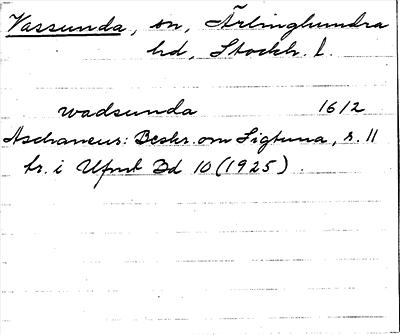 Vassunda, sn, Ärlinghundra
hd, Stockh. l.
wadsunda 1612
Aschaneus: Beskr. om Sigtuna, s. 11
tr. i Ufmt Bd 10 (1925).